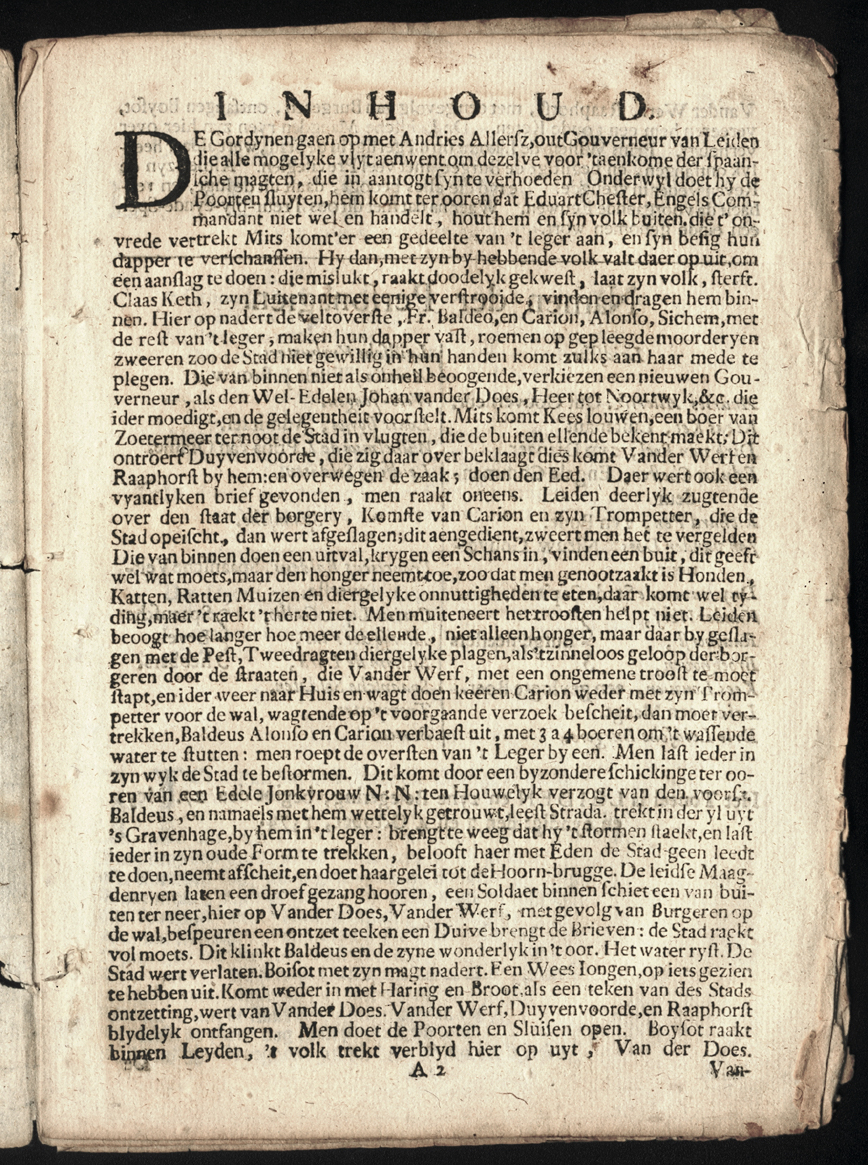 INHOUD.
DE Gordynen gaen op met Andries Allersz, out Gouverneur van Leiden
die alle mogelyke vlyt aenwent om dezelve voor 'taenkome der spaan-
sche magten, die in aantogt syn te verhoeden Onderwyl doet hy de
Poorten sluyten, hem komt ter ooren dat Eduart Chester, Engels Com-
mandant niet wel en handelt, hout hem en syn volk buiten, die t' on-
vrede vertrekt Mits komt'er een gedeelte van 't leger aan, en syn besig hun
dapper te verschanssen. Hy dan, met zyn by hebbende volk valt daer op uit, om
een aanslag te doen: die mislukt, raakt doodelyk gekwest, laat zyn volk, sterft.
Claas Keth, zyn Luitenant met eenige verstrooide, vinden en dragen hem bin-
nen. Hier op nadert de veltoverste, Fr. Baldeo, en Carion, Alonso, Sichem, met
de rest van 't leger; maken hun dapper vast, roemen op gepleegde moorderyen
zweeren zoo de Stad niet gewillig in hun handen komt zulks aan haar mede te
plegen. Die van binnen niet als onheil beoogende, verkiezen een nieuwen Gou-
verneur, als den Wel-Edelen Johan vander Does, Heer tot Noortwyk, &c. die
ider moedigt, en de gelegentheit voorstelt. Mits komt Kees louwen, een boer van
Zoetermeer ter noot de Stad in vlugten, die de buiten ellende bekent maekt; Dit
ontroert Duyvenvoorde, die zig daar over beklaagt dies komt Vander Werf en
Raaphorst by hem: en overwegen de zaak; doen den Eed. Daer wert ook een
vyantlyken brief gevonden, men raakt oneens. Leiden deerlyk zugtende
over den staat der borgery, Komste van Carion en zyn Trompetter, die de
Stad opeischt, dan wert afgeslagen; dit aengedient, zweert men het te vergelden
Die van binnen doen een uitval, krygen een Schans in, vinden een buit, dit geeft
wel wat moets, maar den honger neemt toe, zoo dat men genootzaakt is Honden,
Katten, Ratten Muizen en diergelyke onnuttigheden te eten, daar komt wel ty-
ding, maer 't raekt 't herte niet. Men muiteneert het troosten helpt niet. Leiden
beoogt hoe langer hoe meer de ellende, niet alleen honger, maar daar by gesla-
gen met de Pest, Tweedragten diergelyke plagen, als 't zinneloos geloop der bor-
geren door de straaten, die Vander Werf, met een ongemene troost te moet
stapt, en ider weer naar Huis en wagt doen keeren Carion weder met zyn Trom-
petter voor de wal, wagtende op 't voorgaande verzoek bescheit, dan moet ver-
trekken, Baldeus Alonso en Carion verbaest uit, met 3 a 4 boeren om 't wassende
water te stutten: men roept de oversten van 't Leger by een. Men last ieder in
zyn wyk de Stad te bestormen. Dit komt door een byzondere schickinge ter oo-
ren van een Edele Jonkvrouw N: N: ten Houwelyk verzogt van den voorsz.
Baldeus, en namaels met hem wettelyk getrouwt, leest Strada. trekt in der yl uyt
's Gravenhage, by hem in 't leger: brengt te weeg dat hy 't stormen staekt, en last
ieder in zyn oude Form te trekken, belooft haer met Eden de Stad geen leedt
te doen, neemt afscheit, en doet haar gelei tot de Hoorn-brugge. De leidse Maag-
denryen laten een droef gezang hooren, een Soldaet binnen schiet een van bui-
ten ter neer, hier op Vander Does, Vander Werf, met gevolg van Burgeren op
de wal, bespeuren een ontzet teeken een Duive brengt de Brieven: de Stad raekt
vol moets. Dit klinkt Baldeus en de zyne wonderlyk in 't oor. Het water ryst. De
Stad wert verlaten. Boisot met zyn magt nadert. Een Wees Iongen, op iets gezien
te hebben uit. Komt weder in met Haring en Broot. als een teken van des Stads
ontzetting, wert van Vander Does. Vander Werf, Duyvenvoorde, en Raaphorst
blydelyk ontfangen. Men doet de Poorten en Sluisen open. Boysot raakt
binnen Leyden, 't volk trekt verblyd hier op uyt, Van der Does.
A 2 Van-